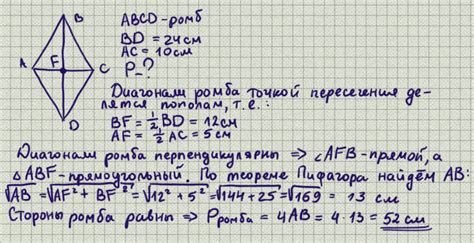 B
A
F
C
D
ABCD-ромб
BD = 24см
AC = 10см
P-?
Диагонали ромба точкой пересечения де-
лятся пополам, т.е.:
BF = 1/2 BD = 12см
AF = 1/2 AC = 5см
Диагонали ромба перпендикулярны ⇒ ∠AFB-прямой, а
△ABF-прямоугольный. По теореме Пифагора найдём AB:
√AB = √AF² + BF² = √12² + 5² = √144+25 = √169 = 13 см
Стороны ромба равны ⇒ Pромба = 4AB = 4·13 = 52 см